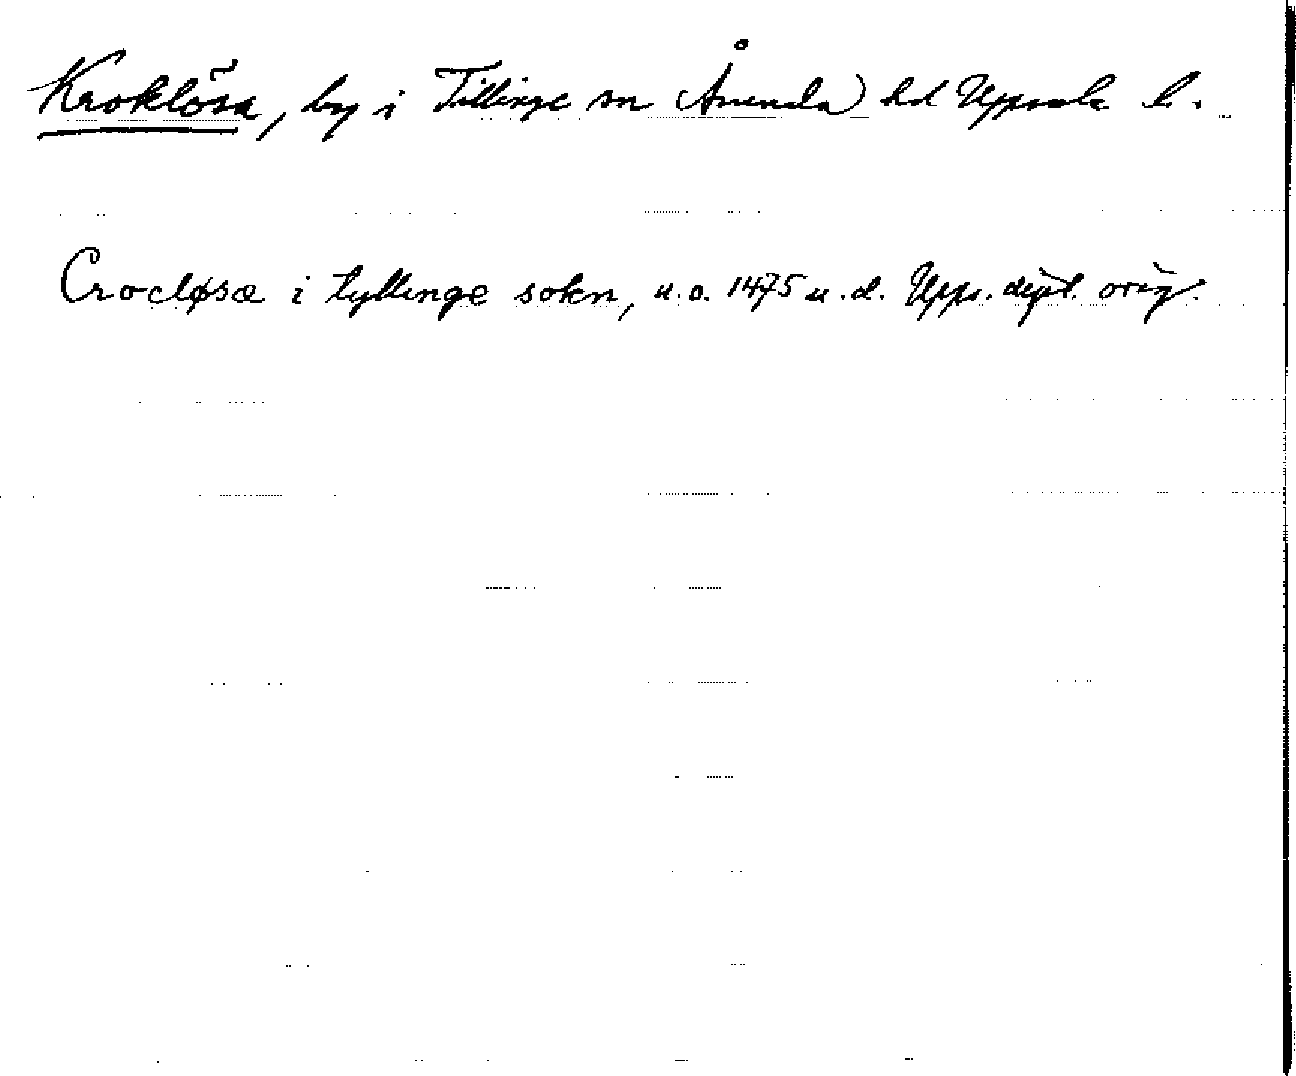 Kroklösa, by i Tillinge sn Åsunda hd Uppsala l.
Crocløsæ i tyllinge sokn, u.o. 1475 u.d. Upps. dipl. orig.